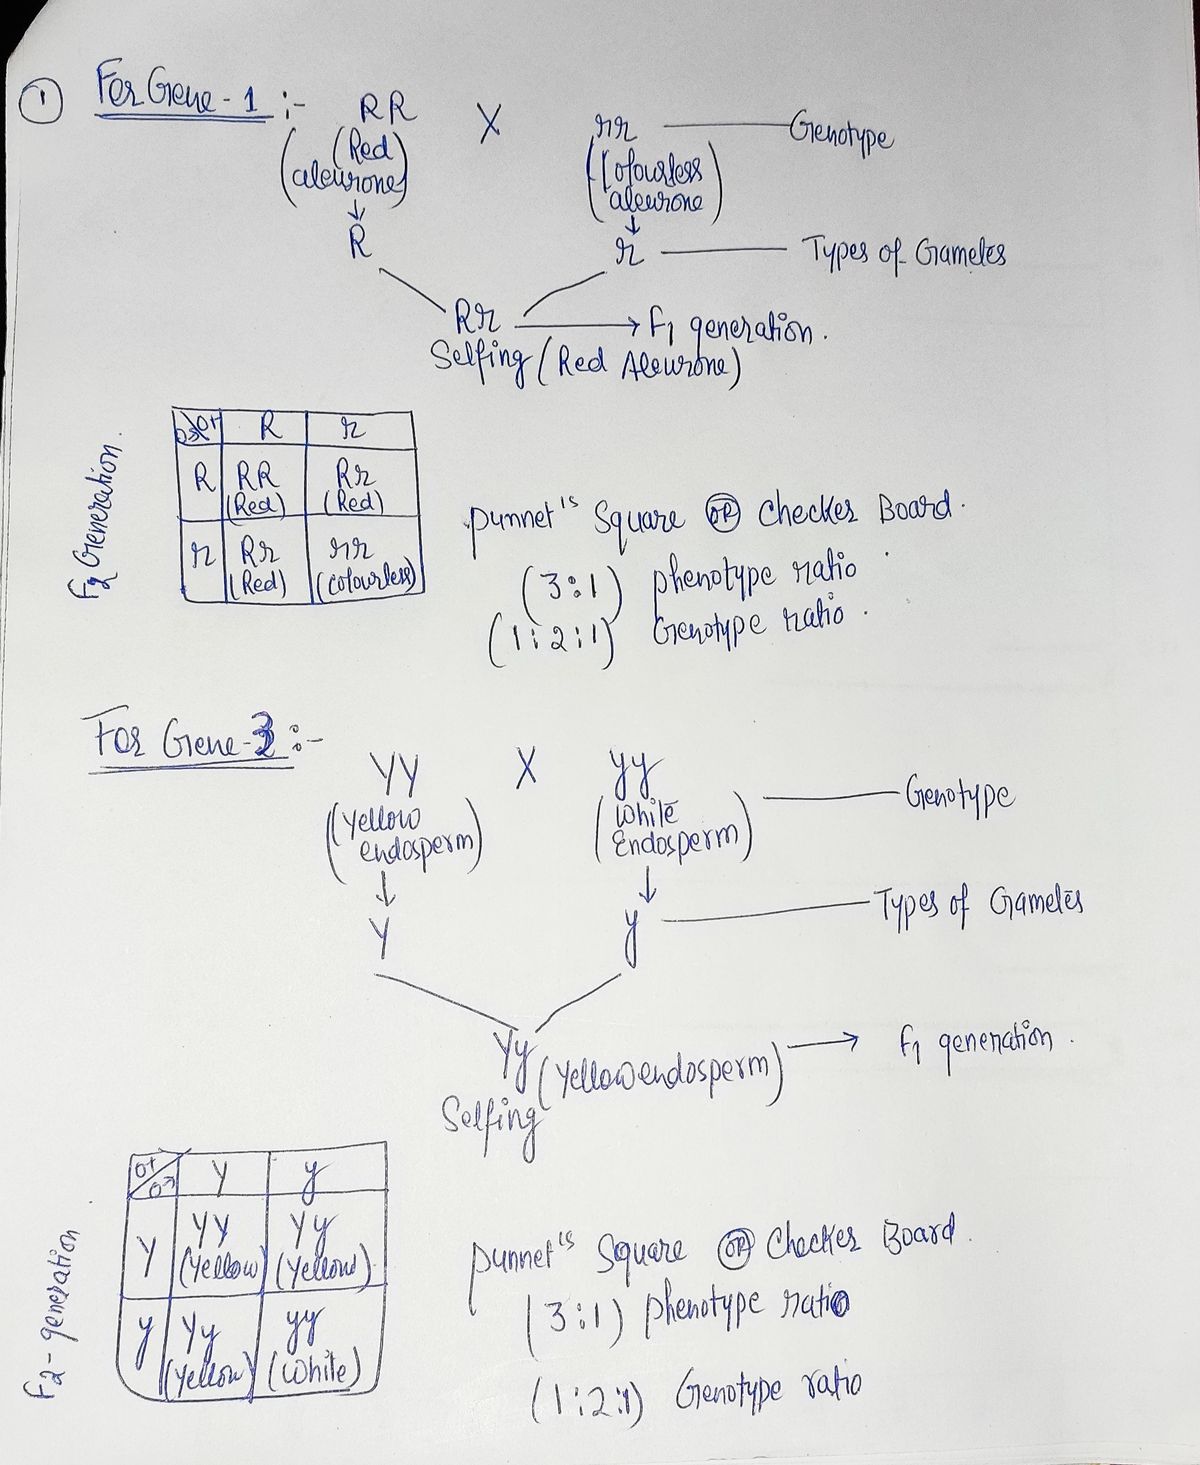 ① For Gene-1 :- RR X rr Genotype
(Red aleurone) (Colourless aleurone)
R r Types of Gametes
Rr → F1 generation.
Selfing (Red Aleurone)
F2 Generation.
♂♀ R r
R RR (Red) Rr (Red)
r Rr (Red) rr (colourless)
punnet's Square OR Checker Board.
(3:1) phenotype ratio
(1:2:1) Genotype ratio.
For Gene-2 :-
YY X yy Genotype
(Yellow endosperm) (White Endosperm)
Y y Types of Gametes
Yy (Yellow endosperm) → F1 generation.
Selfing
F2-generation
♀ ♂ Y y
Y YY (Yellow) Yy (Yellow)
y Yy (Yellow) yy (White)
punnet's Square OR Checker Board.
(3:1) phenotype ratio
(1:2:1) Genotype ratio